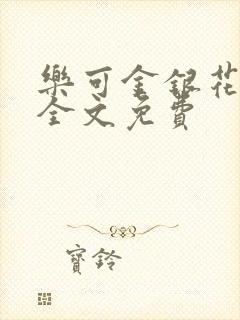 樂可金銀花
全文免費
寶鈴